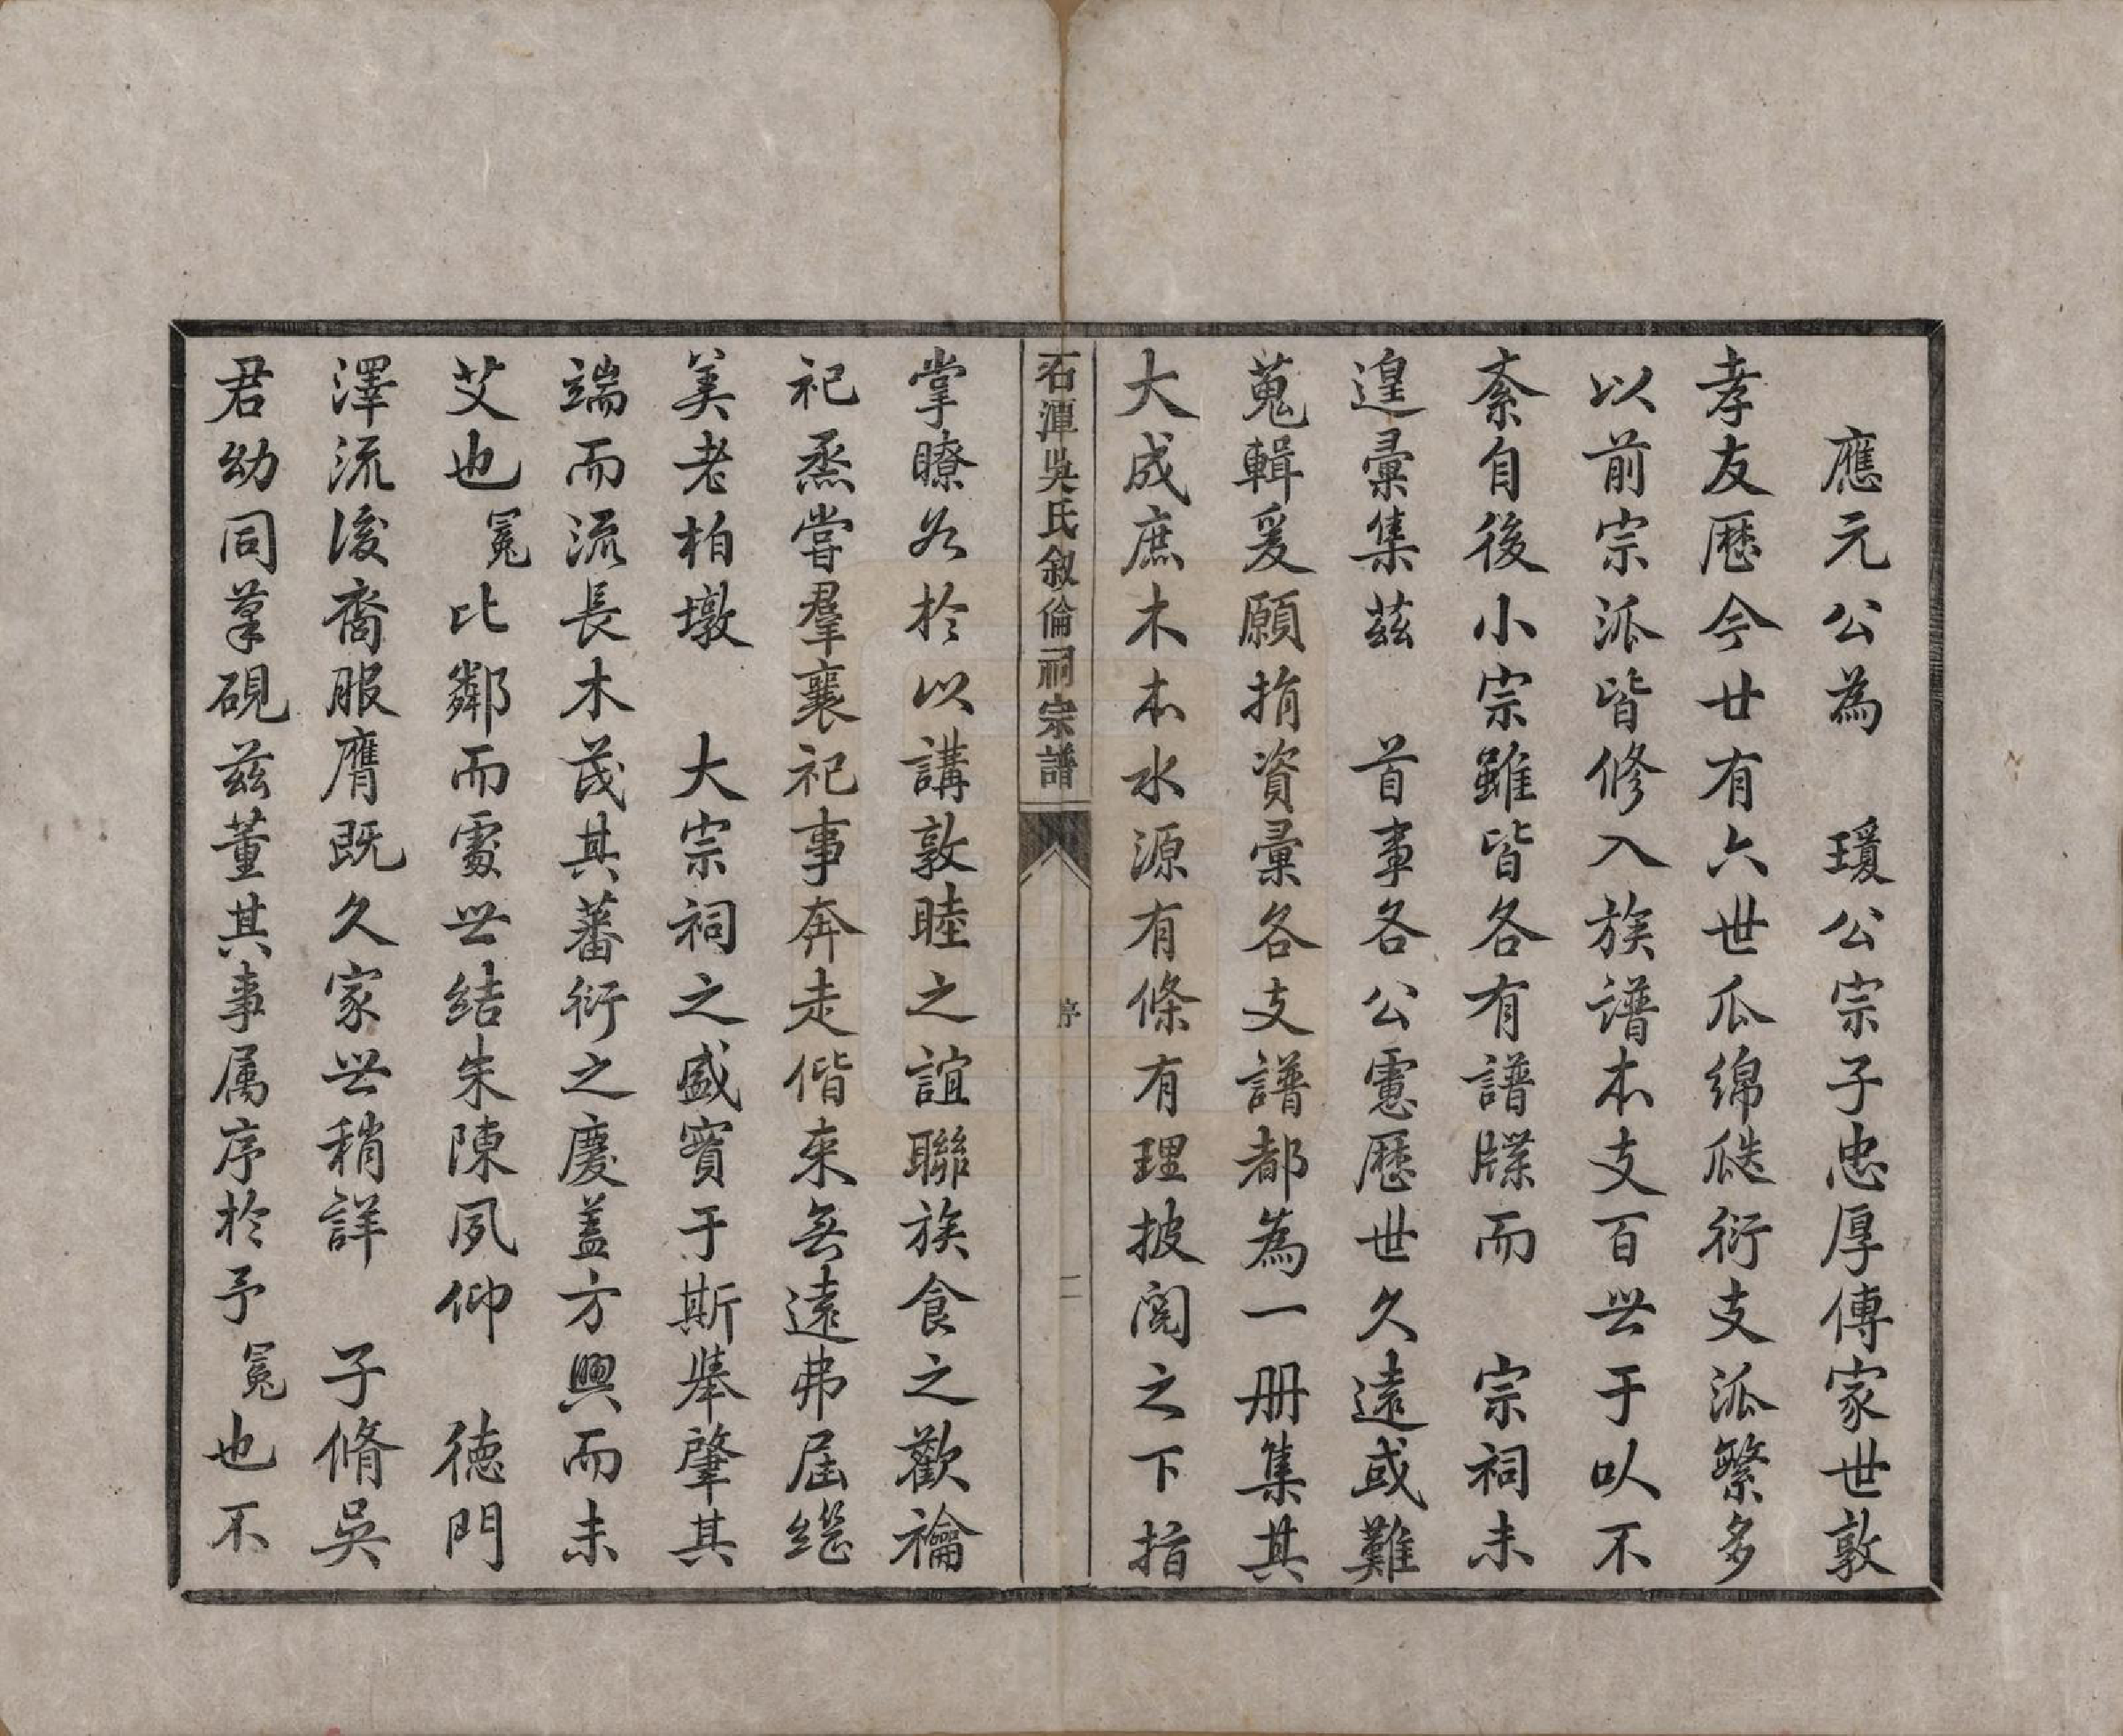 應元公為　瓊公宗子忠厚傳家世敦
孝友歷今廿有六世瓜綿瓞衍支派繁多
以前宗派皆修入族譜本支百世于以不
紊自後小宗雖皆各有譜牒而　宗祠未
遑彙集茲　首事各公慮歷世久遠或難
蒐輯爰願捐資彙各支譜都為一册集其
大成庶木本水源有條有理披閱之下指
石潭吳氏叙倫祠宗譜
序
二
掌瞭如於以講敦睦之誼聯族食之歡禴
祀烝嘗羣襄祀事奔走偕來無遠弗屆繼
美老柏墩　大宗祠之盛實于斯舉肇其
端而流長木茂其蕃衍之慶蓋方興而未
艾也冕比鄰而處世結朱陳夙仰　德門
澤流後裔服膺既久家世稍詳　子脩吳
君幼同筆硯茲董其事屬序於予冕也不